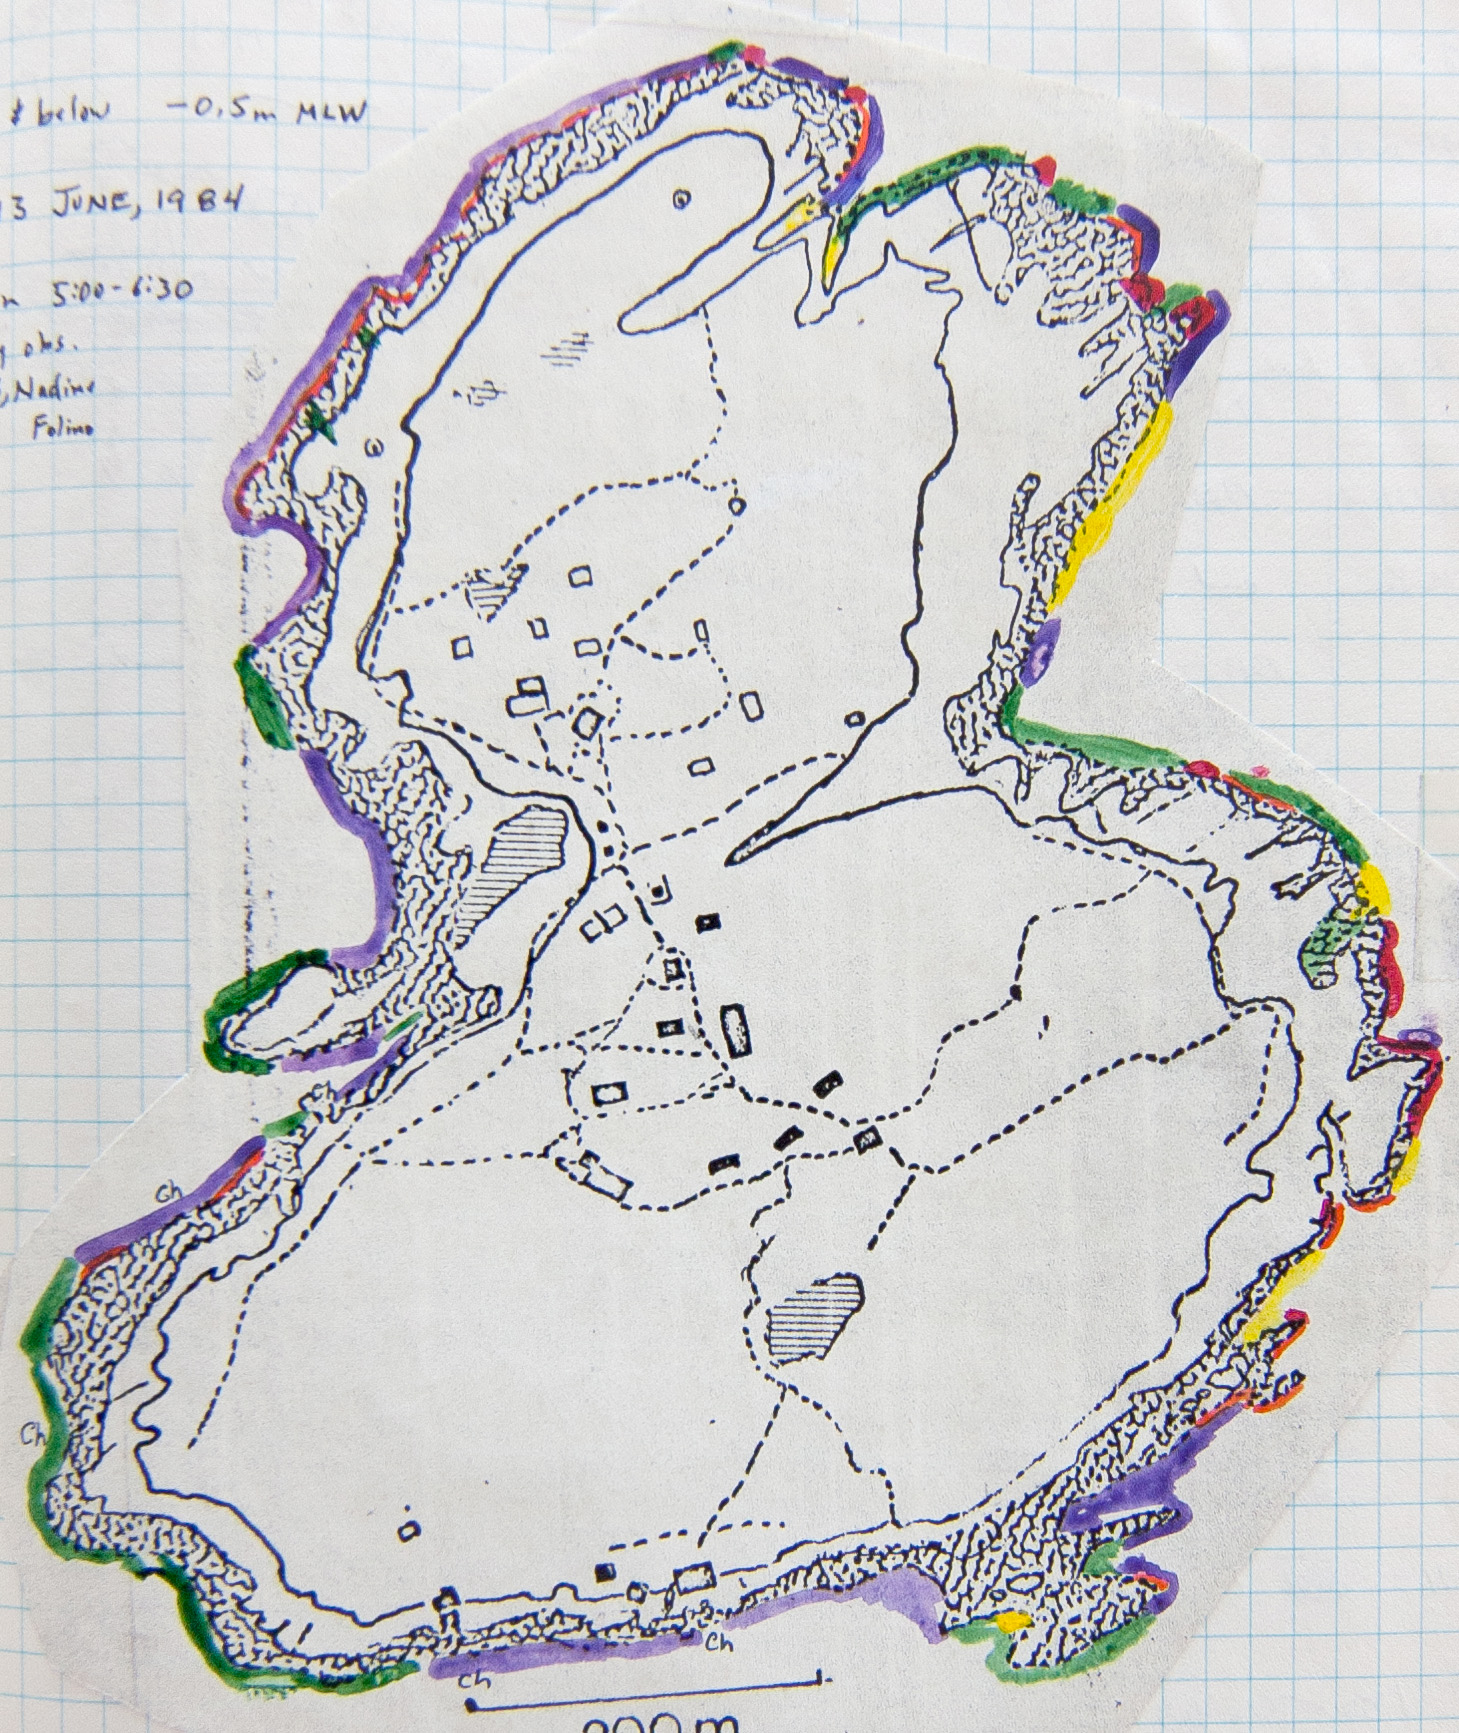 & below -0.5m MLW
3 JUNE, 1984
5:00-6:30
obs.
Nadine
Folino
Ch
Ch
Ch
Ch
Ch
200m